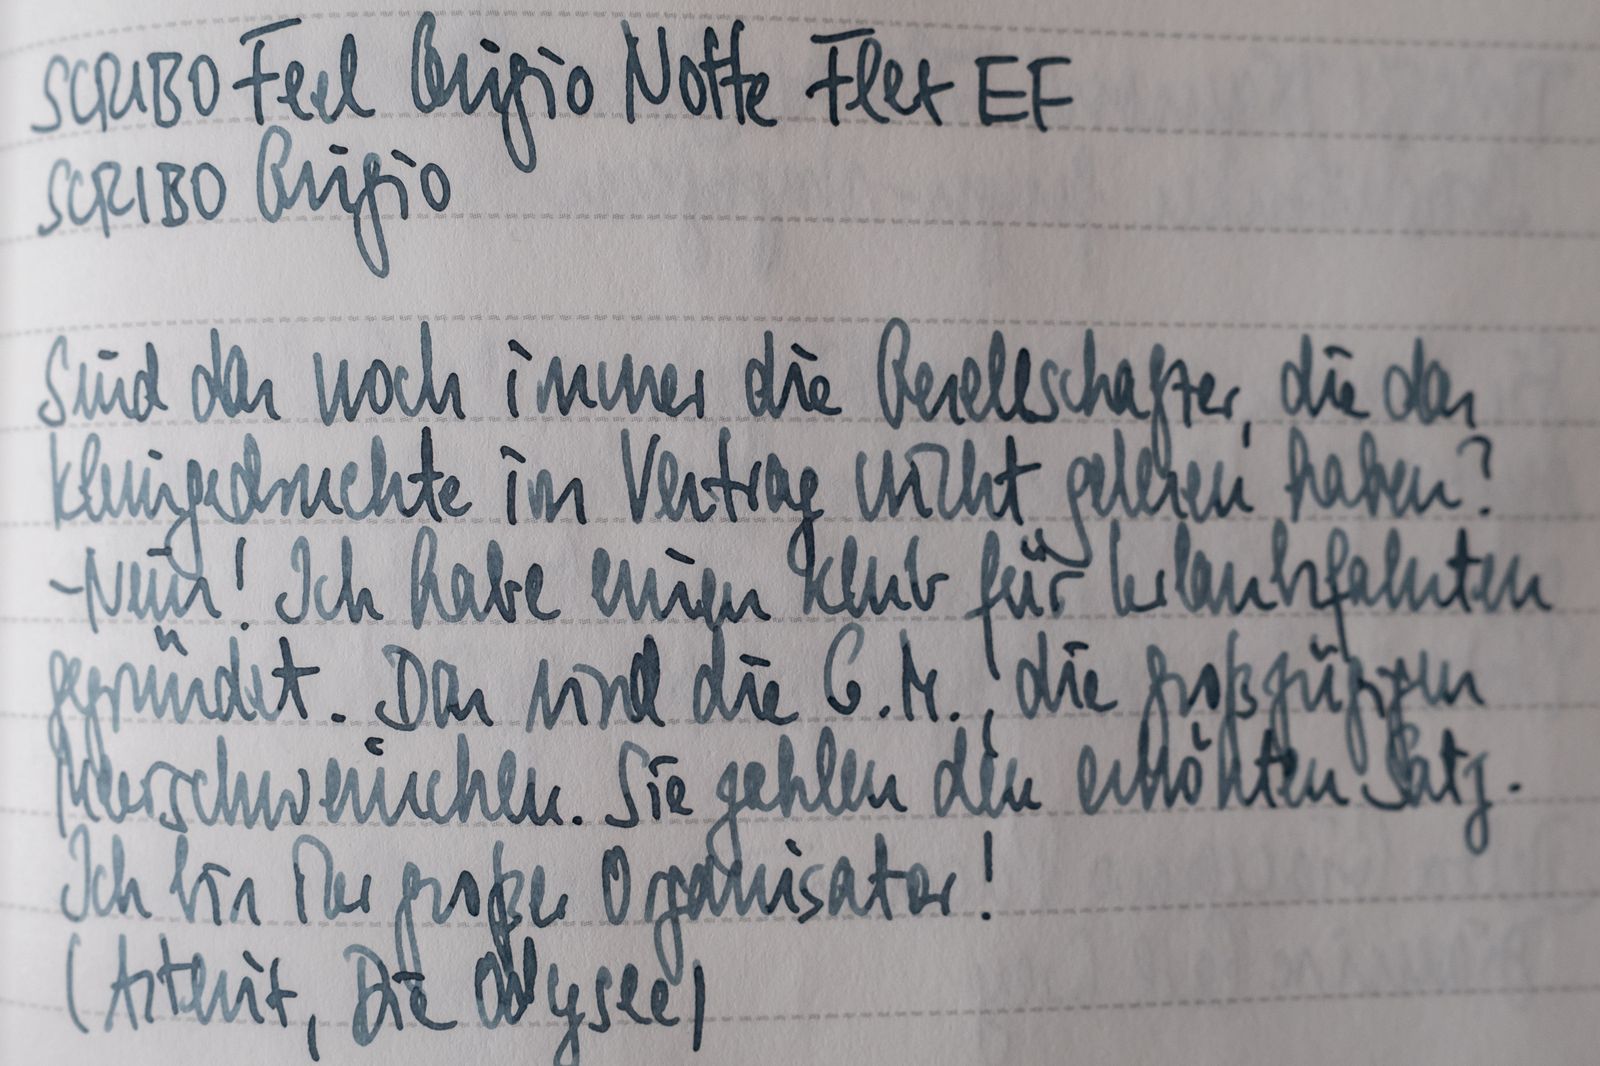 SCRIBO Feel Grigio Notte Flex EF
SCRIBO Grigio
Sind das noch immer die Gesellschafter, die das
Kleingedruckte im Vertrag nicht gelesen haben?
- Nein! Ich habe einen Klub für Urlaubsfahrten
gegründet. Das sind die G.M., die großzügigen
Meerschweinchen. Sie zahlen den erhöhten Satz.
Ich bin Der große Organisator!
(Asterix, Die Odyssee)